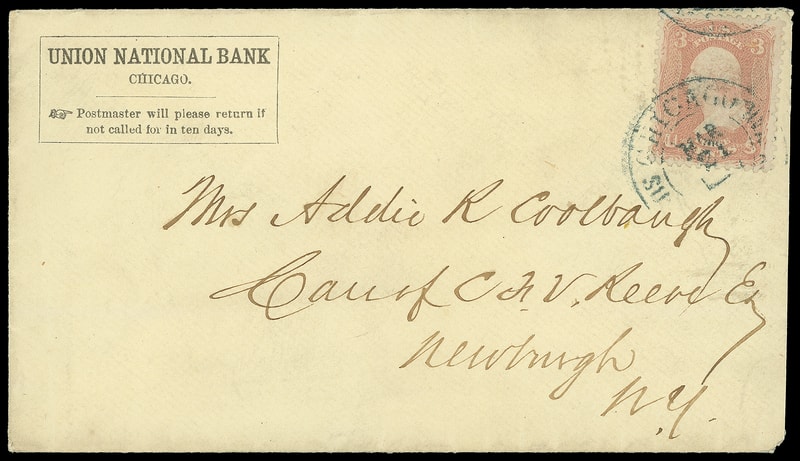 UNION NATIONAL BANK
CHICAGO.
☞ Postmaster will please return if
not called for in ten days.
3 3
POSTAGE
CHICAGO
MAR
3
Mrs Addie R Coolbaugh
Care of C F. V. Reeve Esq
Newburgh
N.Y.